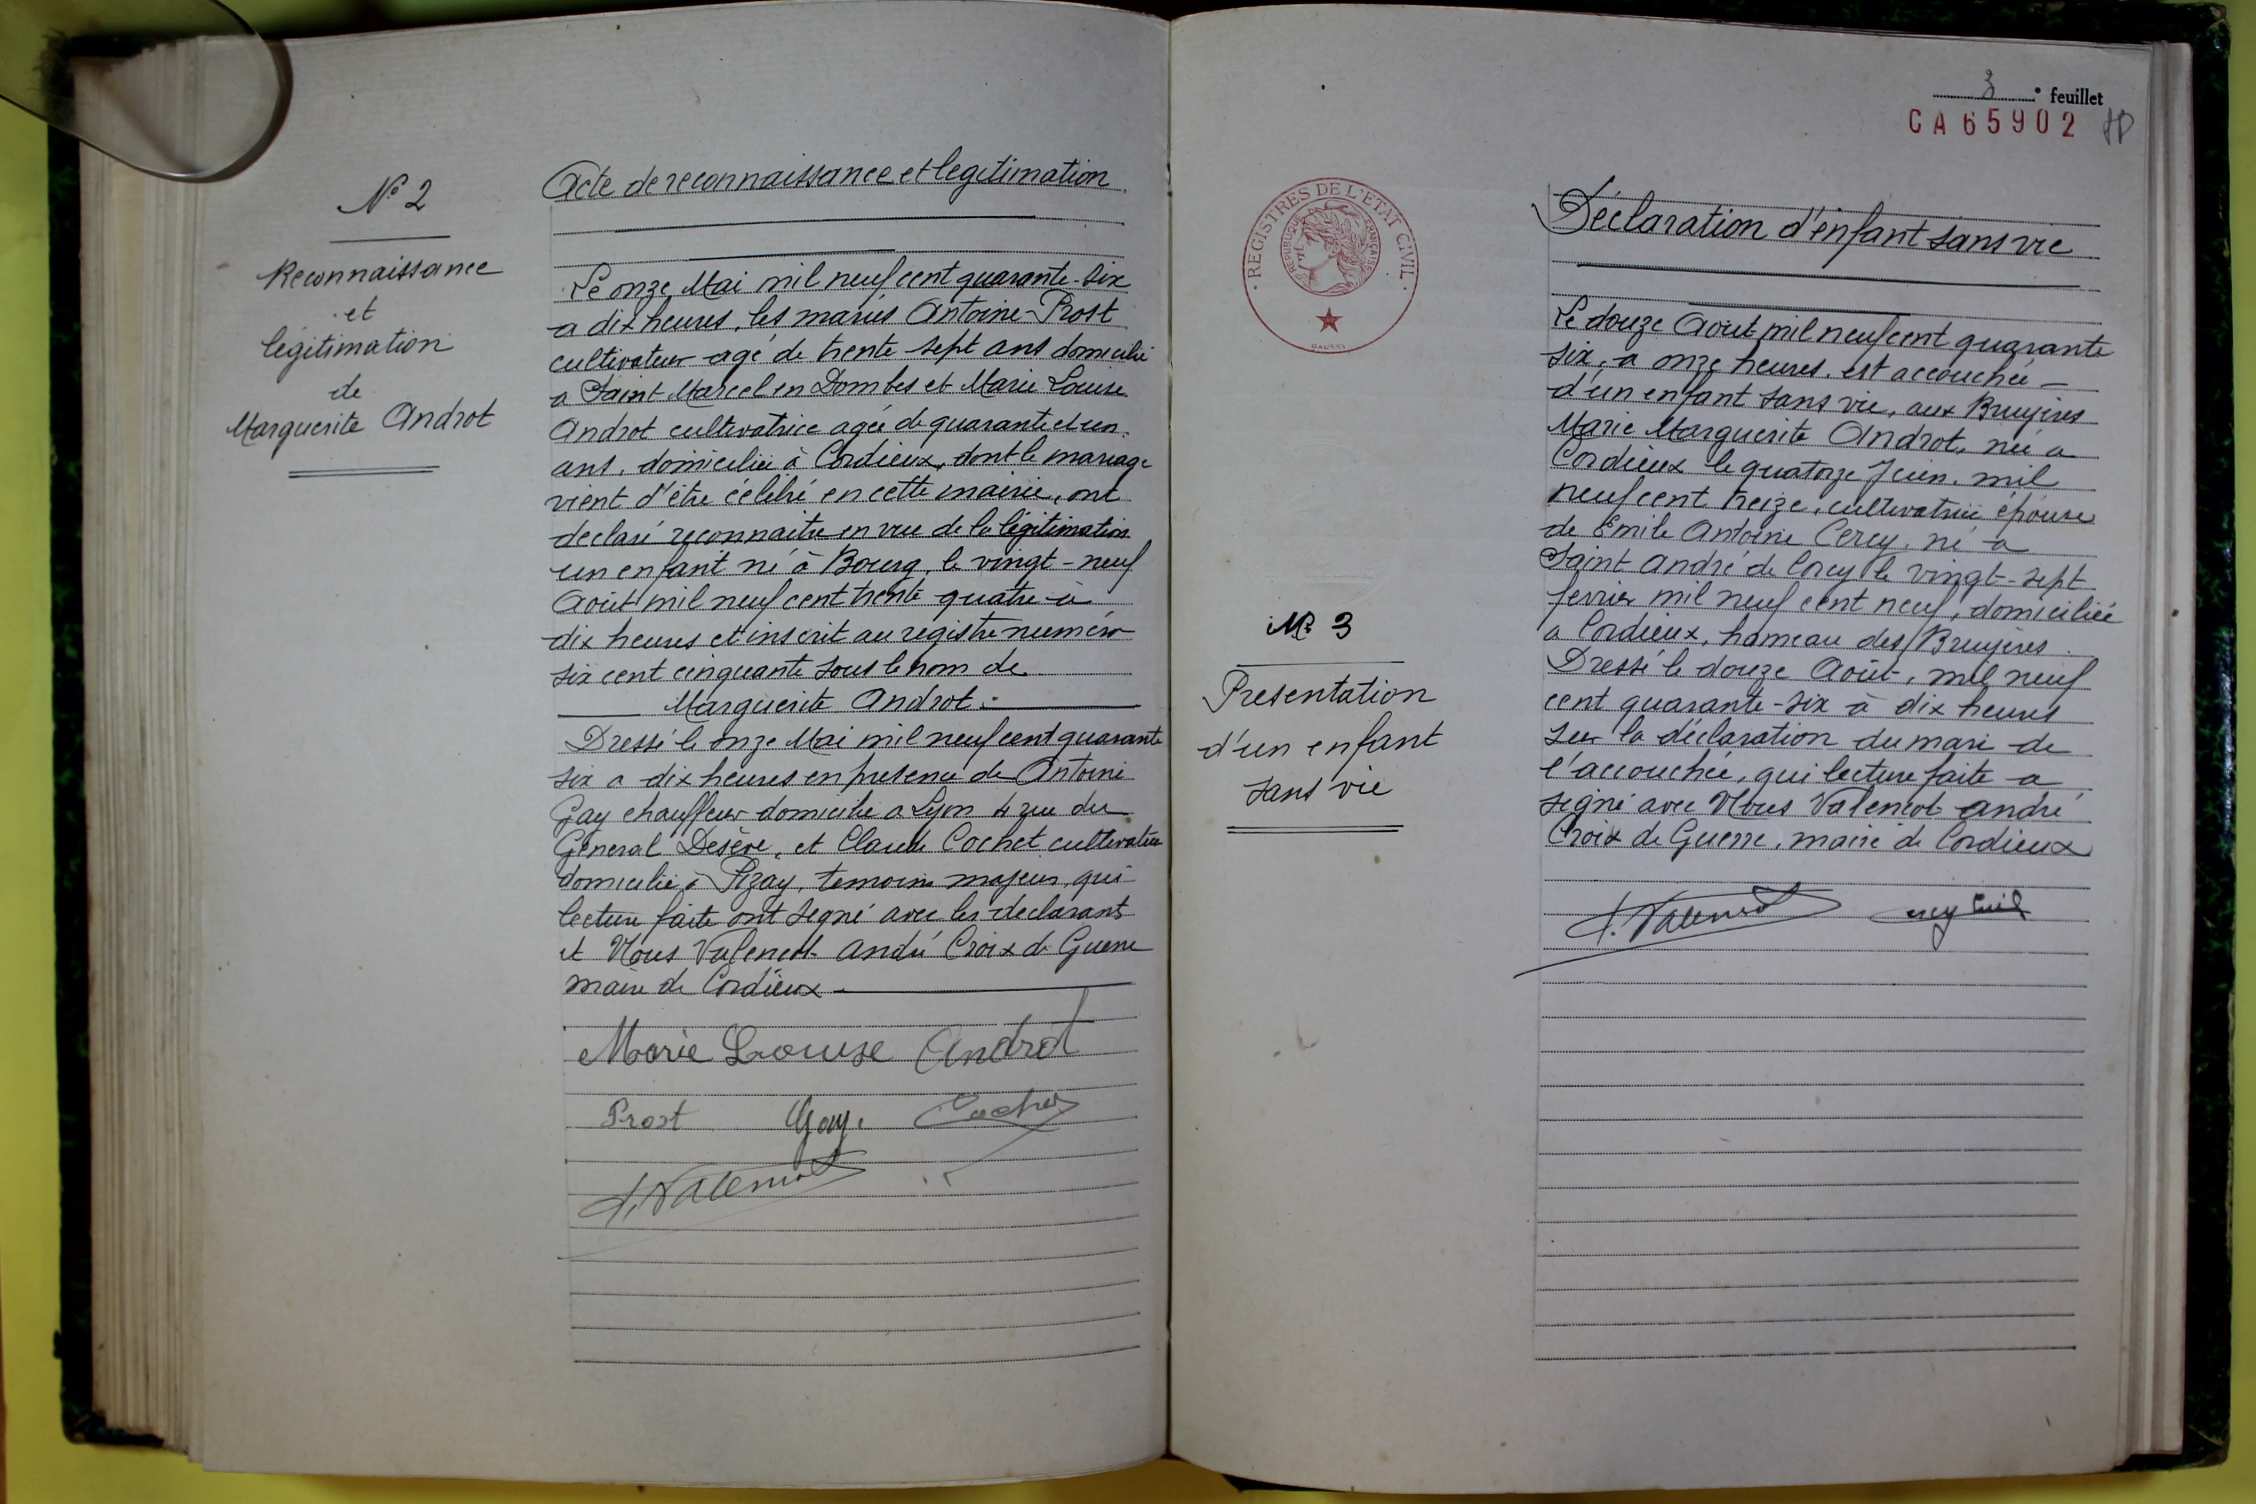 N° 2
Reconnaissance
et
légitimation
de
Marguerite Androt
Acte de reconnaissance et legitimation
Le onze Mai mil neuf cent quarante-six
a dix heures, les mariés Antoine Prost
cultivateur agé de trente-sept ans domicilié
a Saint Marcel en Dombes et Marie Louise
Androt cultivatrice agée de quarante et un
ans, domiciliée à Cordieux, dont le mariage
vient d'être célébré en cette mairie, ont
declaré reconnaitre en vue de la légitimation
un enfant né à Bourg, le vingt-neuf
Août mil neuf cent trente quatre à
dix heures et inscrit au registre numéro
six cent cinquante sous le nom de
Marguerite Androt.
Dressé le onze Mai mil neuf cent quarante
six a dix heures en présence de Antoine
Gay chauffeur domicilié a Lyon 4 rue du
Général Desève, et Claude Cochet cultivateur
domicilié à Pizay, temoins majeurs, qui
lecture faite ont signé avec les declarants
et Nous Valencot André Croix de Guerre
maire de Cordieux
Marie Louise Androt
Prost Gay. Cochet
A. Valencot
3e feuillet
CA65902
REGISTRES DE L'ETAT CIVIL
REPUBLIQUE FRANÇAISE
N° 3
Presentation
d'un enfant
sans vie
Déclaration d'enfant sans vie
Le douze Août mil neuf cent quarante
six, a onze heures, est accouchée
d'un enfant sans vie, aux Bruyères
Marie Marguerite Androt, née a
Cordieux le quatorze Juin, mil
neuf cent treize, cultivatrice épouse
de Emile Antoine Cercy, né a
Saint André de Corcy le vingt-sept
février mil neuf cent neuf, domiciliée
a Cordieux, hameau des Bruyères.
Dressé le douze Août, mil neuf
cent quarante-six à dix heures
sur la déclaration du mari de
l'accouchée, qui lecture faite a
signé avec Nous Valencot André
Croix de Guerre, maire de Cordieux
A. Valencot